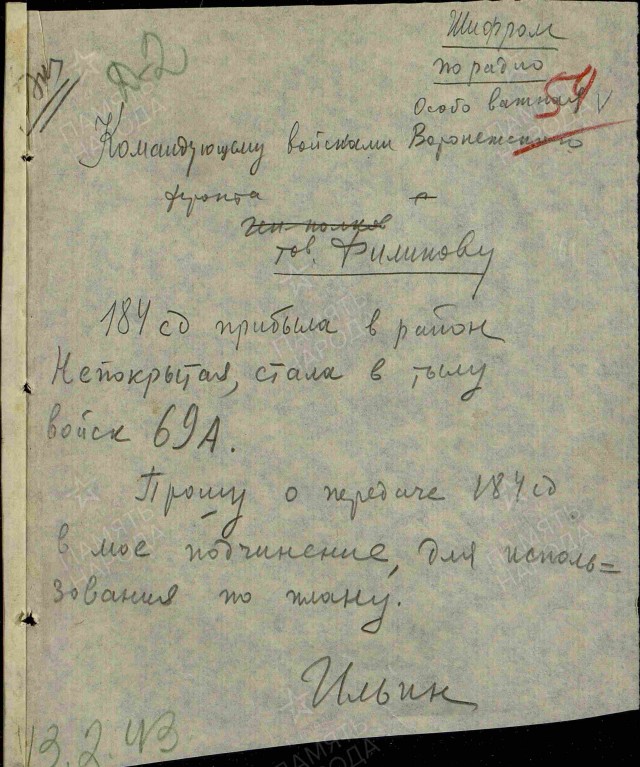 Шифром
по радио
Особо важная
54
Д-2
Командующему войсками Воронежского
фронта
ген полков
тов. Филипову
184 сд прибыла в район
Непокрытая, стала в тылу
войск 69А.
Прошу о передаче 184 сд
в мое подчинение, для исполь=
зования по плану.
Ильин
13.2.43
ПАМЯТЬ
НАРОДА